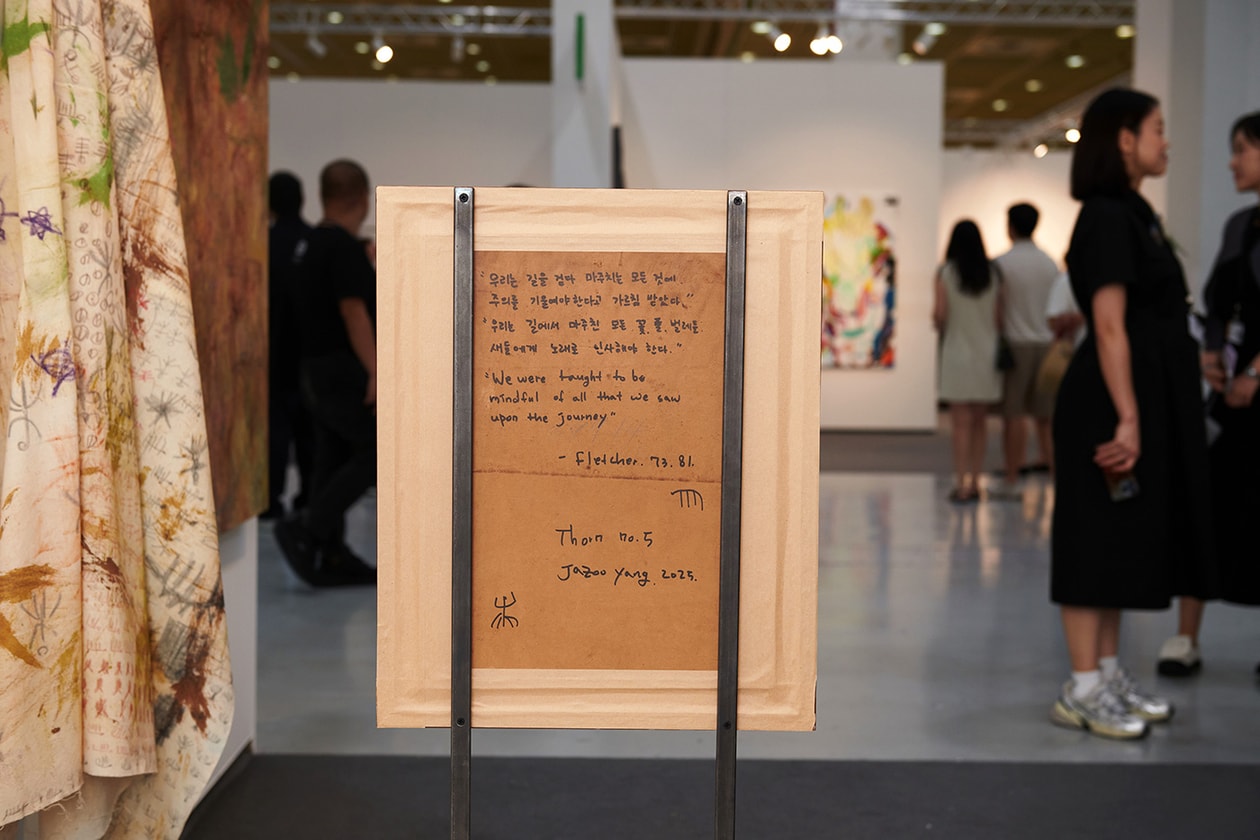 "우리는 길을 걷다 마주치는 모든 것에
주의를 기울여야한다고 가르침 받았다."
"우리는 길에서 마주친 모든 꽃, 풀, 벌레들
새들에게 노래로 인사해야 한다."
"We were taught to be
mindful of all that we saw
upon the journey"
- Fletcher. 73. 81.
Thorn no.5
Jazoo Yang. 2025.